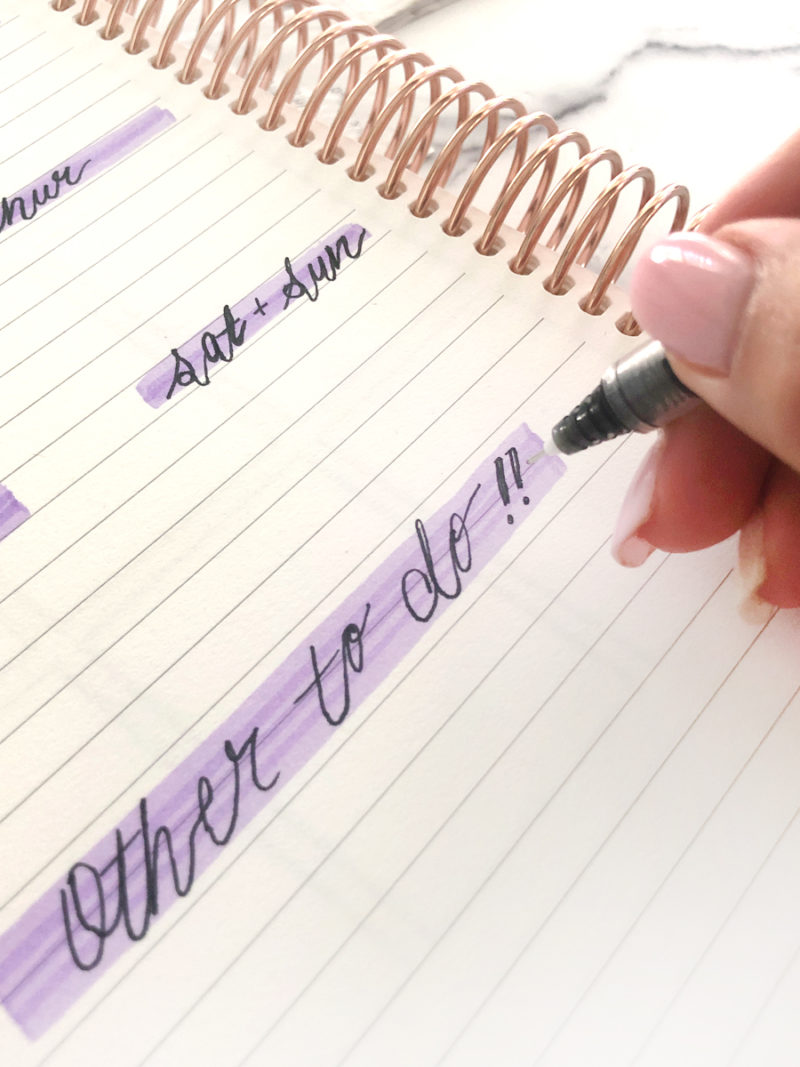 hur
sat + sun
Other to do !!